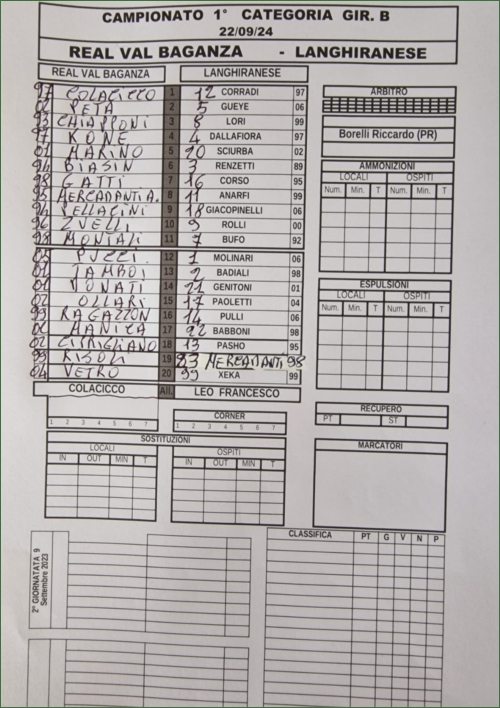 CAMPIONATO 1° CATEGORIA GIR. B
22/09/24
REAL VAL BAGANZA - LANGHIRANESE
REAL VAL BAGANZA LANGHIRANESE
97 COLACICCO 1 12 CORRADI 97
PETA 2 5 GUEYE 06
93 CHIAPPONI 3 8 LORI 99
97 KONE 4 4 DALLAFIORA 97
02 MARINO 5 20 SCIURBA 02
94 BIASIN 6 3 RENZETTI 89
98 GATTI 7 16 CORSO 95
95 MERCADANTI A. 8 11 ANARFI 99
94 PELLACINI 9 18 GIACOPINELLI 06
96 ZVELLI 10 9 ROLLI 00
98 MONTALI 11 7 BUFO 92
PUCCI 12 1 MOLINARI 06
TAMBOI 13 2 BADIALI 98
DONATI 14 21 GENITONI 01
02 OLLARI 15 17 PAOLETTI 04
99 RAGAZZON 16 14 PULLI 06
MANICA 17 22 BABBONI 98
02 CIRRIGLIANO 18 13 PASHO 95
99 RISOLI 19 23 MERCADANTI 98
04 VETRO 20 99 XEKA 99
COLACICCO All. LEO FRANCESCO
1 2 3 4 5 6 7
CORNER
1 2 3 4 5 6 7
SOSTITUZIONI
LOCALI OSPITI
IN OUT MIN T IN OUT MIN T
ARBITRO
Borelli Riccardo (PR)
AMMONIZIONI
LOCALI OSPITI
Num. Min. T Num. Min. T
ESPULSIONI
LOCALI OSPITI
Num. Min. T Num. Min. T
RECUPERO
PT ST
MARCATORI
2° GIORNATATA 9
Settembre 2023
CLASSIFICA PT G V N P